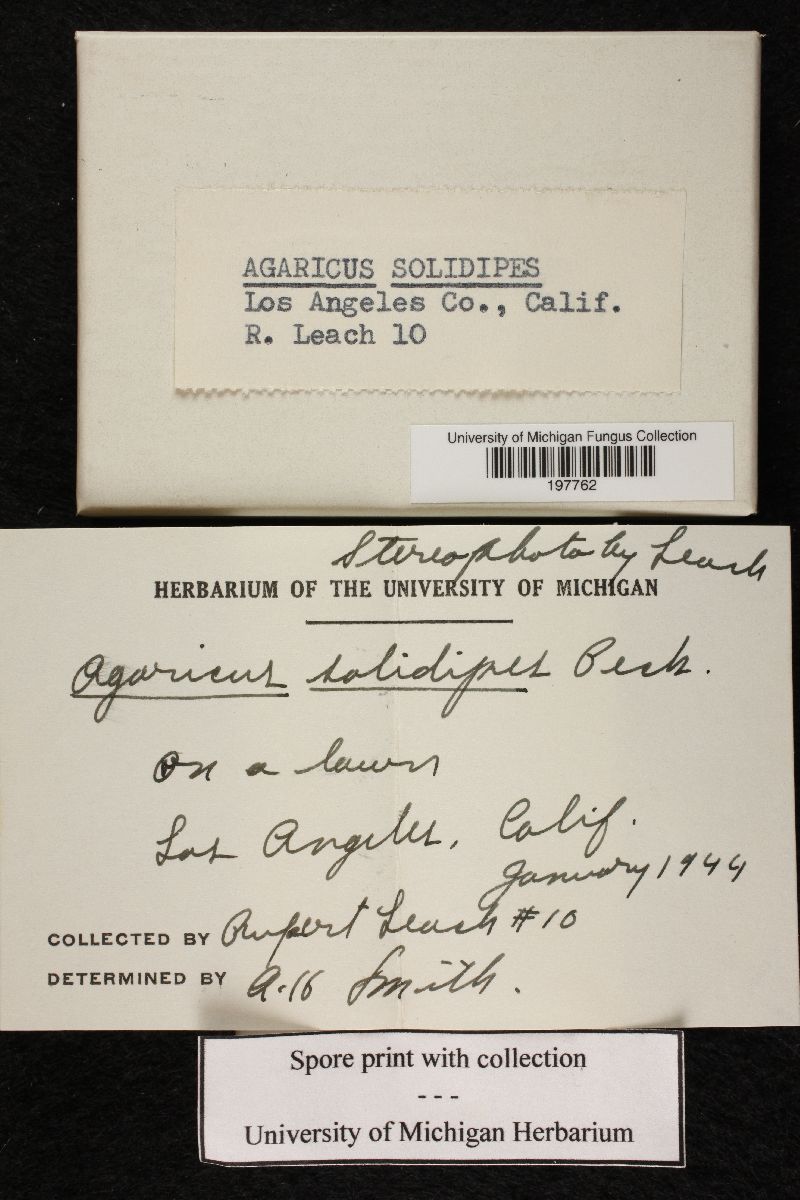 AGARICUS SOLIDIPES
Los Angeles Co., Calif.
R. Leach 10
University of Michigan Fungus Collection
197762
Stereophoto by Leach
HERBARIUM OF THE UNIVERSITY OF MICHIGAN
Agaricus solidipes Peck.
On a lawn
Los Angeles, Calif.
January 1944
COLLECTED BY Rupert Leach #10
DETERMINED BY A.H Smith.
Spore print with collection
---
University of Michigan Herbarium